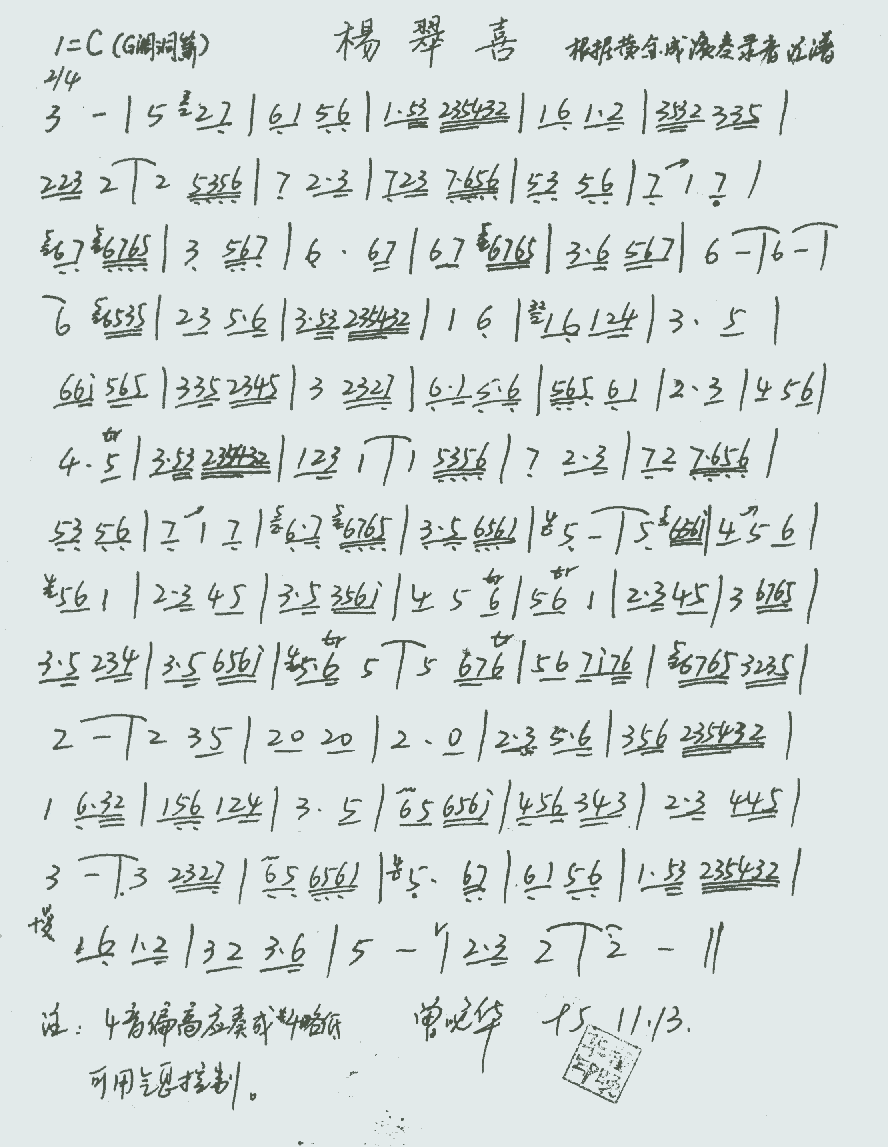 1=C (G洞箫) 楊翠喜 根据 录音记谱
2/4
3 - | 5 27 | 61 56 | 1·53 235432 | 16 1·2 | 3532 335 |
223 2 | 2 5356 | 7 2·3 | 723 7·656 | 53 56 | 7 1 7 |
67 6765 | 3 567 | 6 · 67 | 67 6765 | 3·6 567 | 6 - | 6 - |
6 6535 | 23 5·6 | 3·53 235432 | 1 6 | 32 16 124 | 3· 5 |
66i 565 | 335 2345 | 3 2327 | 6·1 5·6 | 565 61 | 2·3 | 4 56 |
4· tr 5 | 3·53 235432 | 123 1 | 1 5356 | 7 2·3 | 72 7·656 |
53 56 | 7 1 7 | 6·7 6765 | 3·5 6561 | 5 - | 5 656i | 4 5 6 |
#4 56 1 | 2·3 45 | 3·5 356i | 4 5 tr 6 | 5 tr 6 1 | 2·3 45 | 3 6765 |
3·5 234 | 3·5 656i | 5· tr 6 5 | 5 67 tr 6 | 56 7i76 | 6765 3235 |
2 - | 2 35 | 20 20 | 2 · 0 | 2·3 5·6 | 356 235432 |
1 6·32 | 156 124 | 3· 5 | 65 656i | 456 343 | 2·3 445 |
3 - | 3 2327 | 65 6561 | 5· 67 | 61 56 | 1·53 235432 |
慢 16 1·2 | 32 3·6 | 5 - | 2·3 2 | 2 - ||
注: 4音偏高应奏成#4略低 曾 华 15.11.13.
可用气息控制。